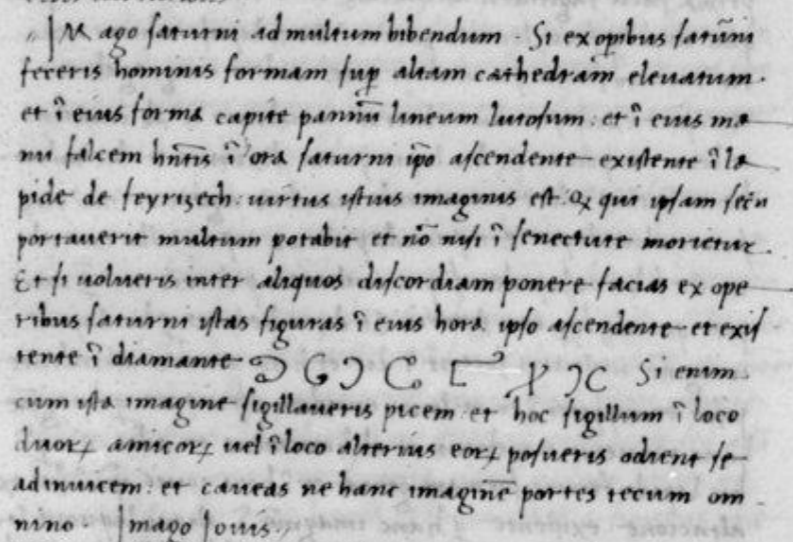 Imago saturni ad multum bibendum. Si ex opibus satuni
feceris hominis formam sup altam cathedram elevatum.
et ī eius forma capite pannū lineum lutosum: et ī eius ma
nu falcem hn̄tis ī ora saturni ip̄o ascendente existente ī la
pide de feyrizech: uirtus istius imaginis est qꝫ qui ipsam secū
portauerit multum potabit et nō nisi ī senectute morietur.
Et si uolueris inter aliquos discordiam ponere facias ex ope
ribus saturni istas figuras ī eius hora ipso ascendente et exis
tente ī diamante Si enim
cum ista imagine sigillaueris picem et hoc sigillum ī loco
duoꝝ amicoꝝ uel ī loco alterius eoꝝ posueris odient se
adinuicem: et caueas ne hanc imaginē portes tecum om
nino. Imago Iouis.